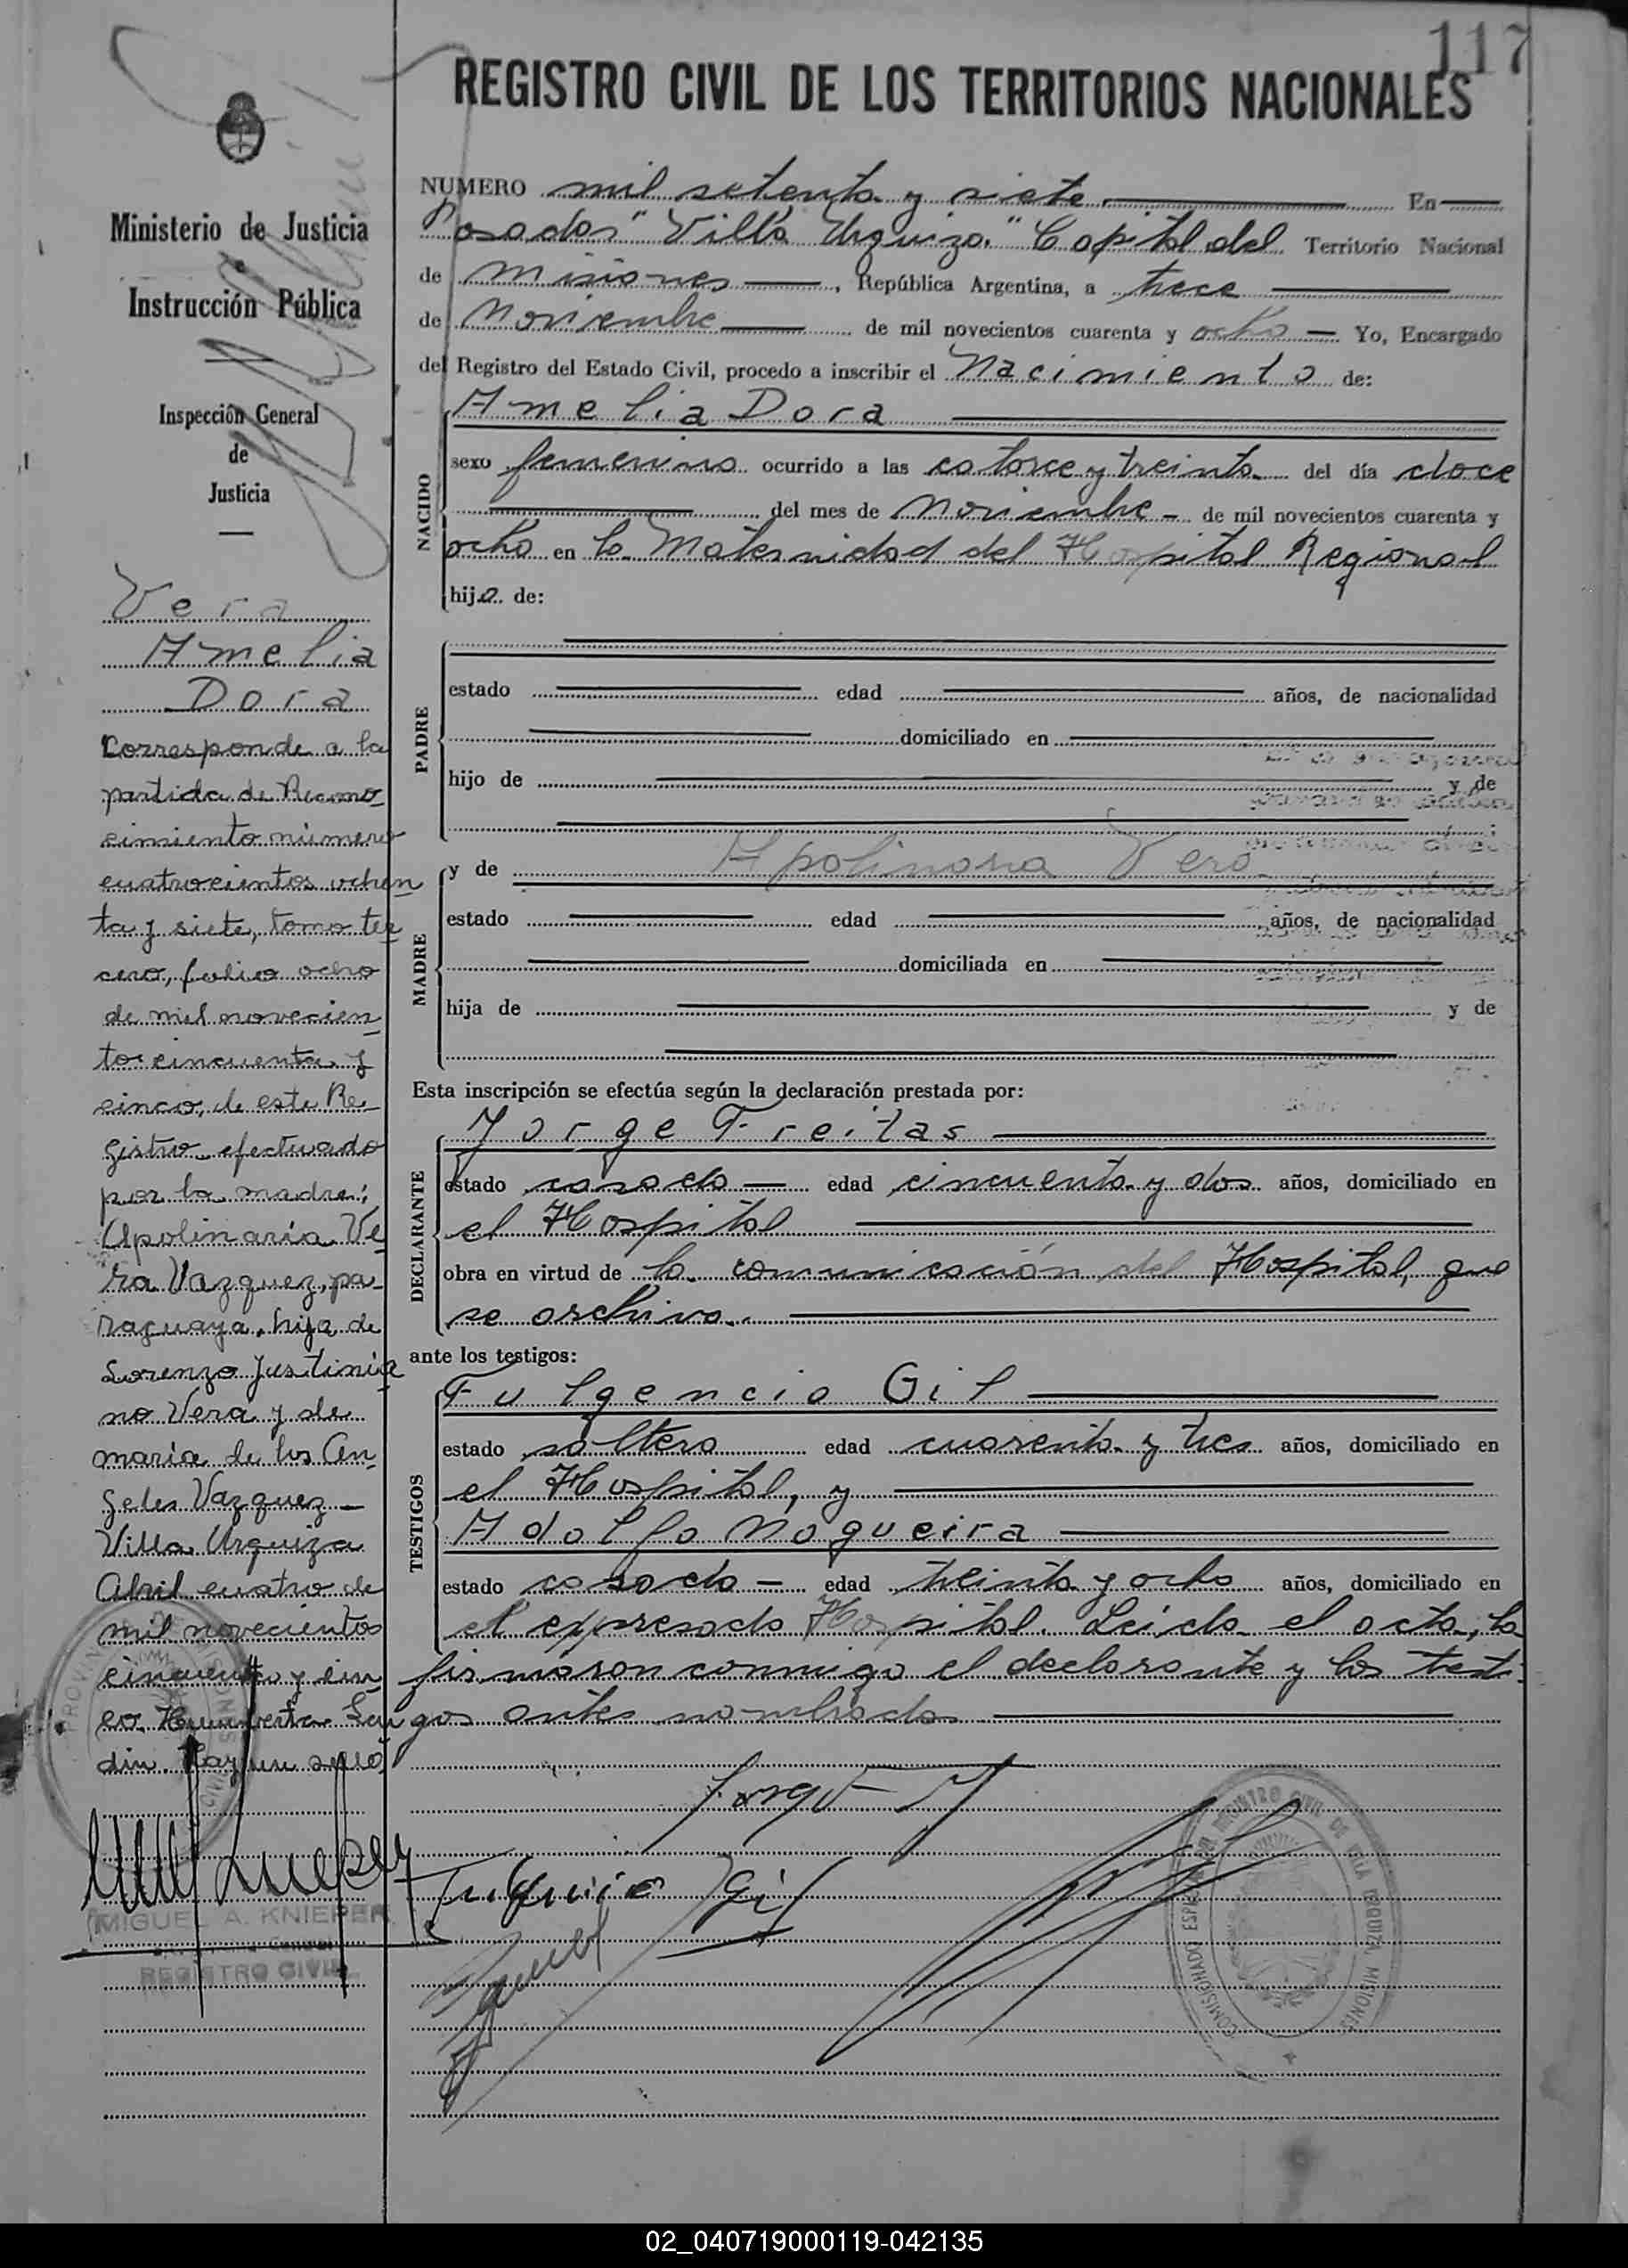 117
REGISTRO CIVIL DE LOS TERRITORIOS NACIONALES
Ministerio de Justicia
e
Instrucción Pública
Inspección General
de
Justicia
Vera
Amelia
Dora
Corresponde a la
partida de Recono
cimiento número
cuatrocientos ochen
ta y siete, tomo ter
cero, folio ocho
de mil novecien
tos cincuenta y
cinco, de este Re
gistro efectuado
por la madre:
Apolinaria Ve
ra Vazquez, pa
raguaya, hija de
Lorenzo Justinia
no Vera y de
María de los An
geles Vazquez —
Villa Urquiza
Abril cuatro de
mil novecientos
cincuenta y cin
co. Humberto Lan
din. Hay un sello
MIGUEL A. KNIEPER
REGISTRO CIVIL
NUMERO mil setenta y siete En
Posadas "Villa Urquiza" Capital del Territorio Nacional
de Misiones, República Argentina, a trece
de Noviembre de mil novecientos cuarenta y ocho Yo, Encargado
del Registro del Estado Civil, procedo a inscribir el Nacimiento de:
NACIDO
Amelia Dora
sexo femenino ocurrido a las catorce y treinta del día doce
del mes de Noviembre de mil novecientos cuarenta y
ocho en la Maternidad del Hospital Regional
hija de:
PADRE
estado edad años, de nacionalidad
domiciliado en
hijo de y de
MADRE
y de Apolinaria Vera
estado edad años, de nacionalidad
domiciliada en
hija de y de
Esta inscripción se efectúa según la declaración prestada por:
DECLARANTE
Jorge Freitas
estado casado edad cincuenta y dos años, domiciliado en
el Hospital
obra en virtud de la comunicación del Hospital, que
se archiva.
ante los testigos:
TESTIGOS
Fulgencio Gil
estado soltero edad cuarenta y tres años, domiciliado en
el Hospital, y
Adolfo Nogueira
estado casado edad treinta y ocho años, domiciliado en
el expresado Hospital. Leida el acta, la
firmaron conmigo el declarante y los testi
gos antes nombrados
Jorge F
Fulgencio Gil
COMISIONADO ESPECIAL DEL REGISTRO CIVIL DE VILLA URQUIZA MISIONES
02_040719000119-042135